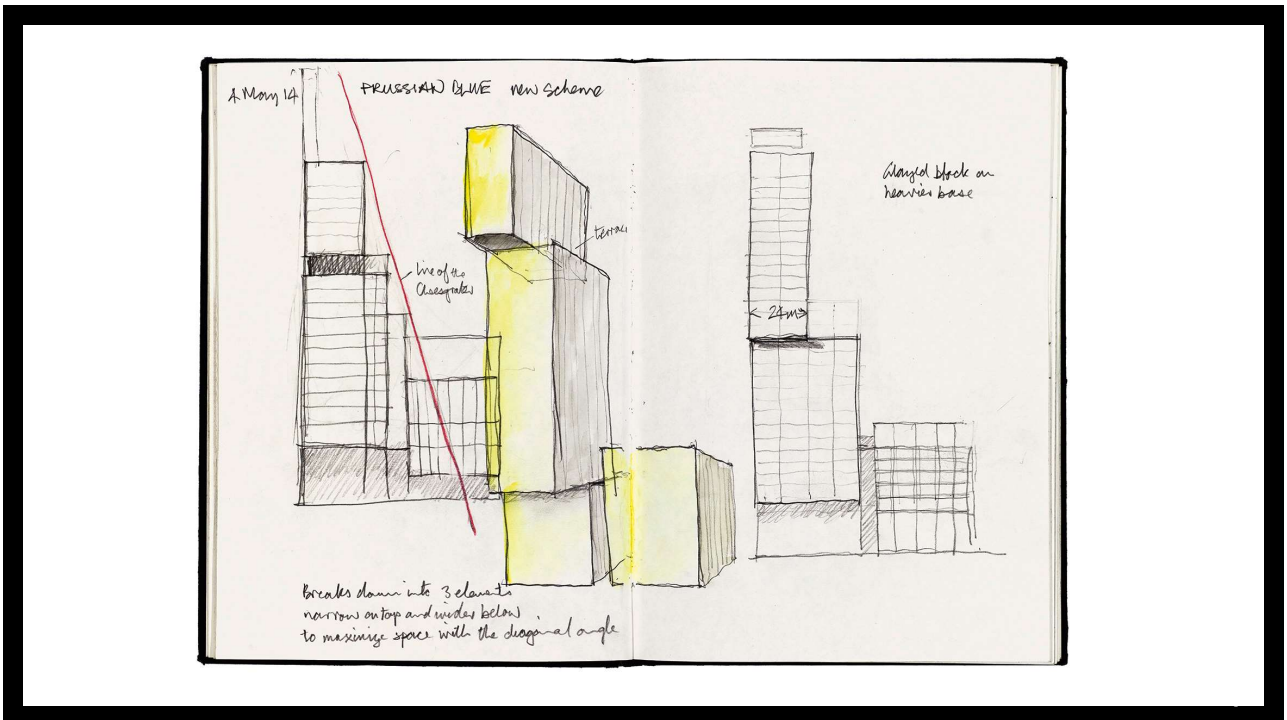 4 May 14
PRUSSIAN BLUE new scheme
terrace
line of the
Cheesegrater
24m
Glazed block on
heavier base
Breaks down into 3 elements
narrow on top and wider below
to maximize space with the diagonal angle